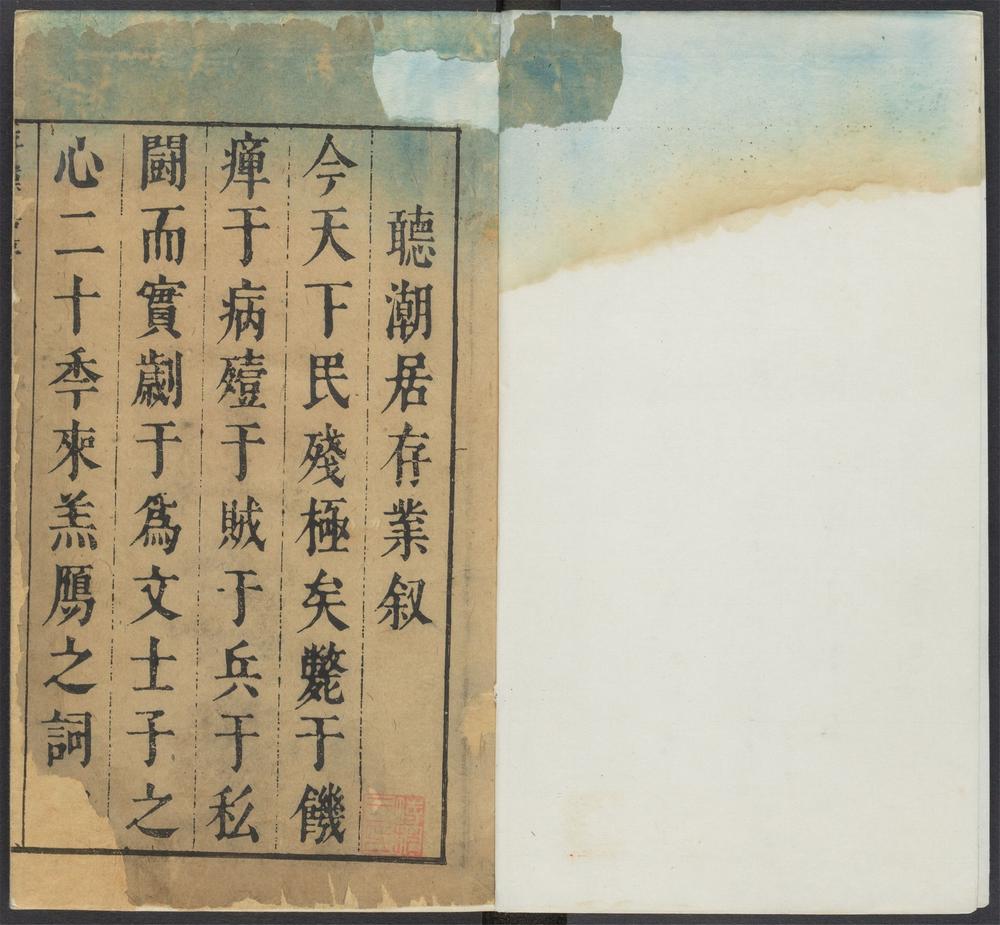 聽潮居存業叙
今天下民殘極矣斃于饑
瘅于病殪于賊于兵于私
鬪而實劌于爲文士子之
心二十季來羔鴈之詞